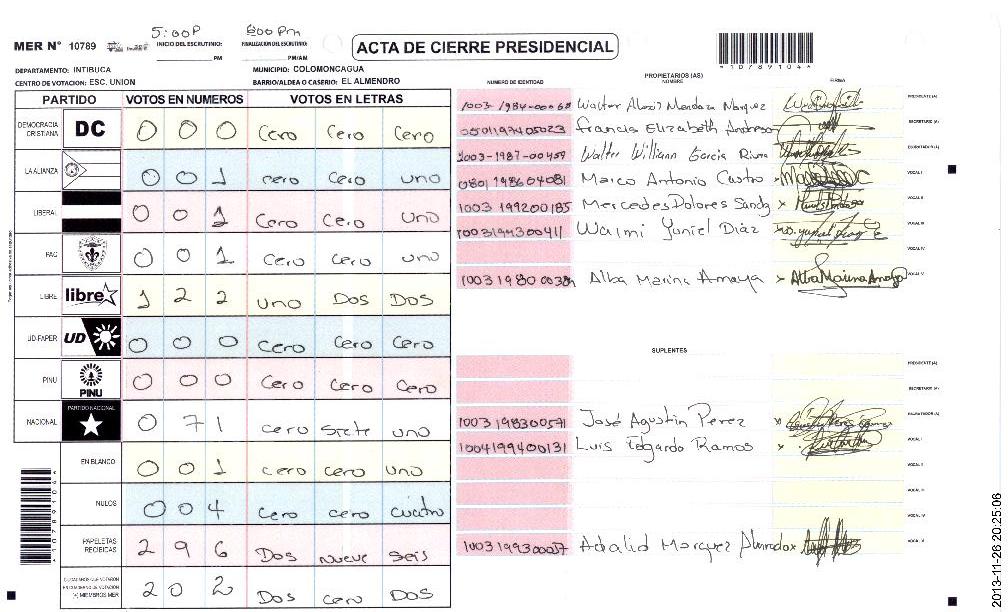 5:00P 800 Pm
MER Nº 10789 INICIO DEL ESCRUTINIO: PM FINALIZACIÓN DEL ESCRUTINIO: PM/AM ACTA DE CIERRE PRESIDENCIAL
10789104
DEPARTAMENTO: INTIBUCA MUNICIPIO: COLOMONCAGUA
CENTRO DE VOTACION: ESC. UNION BARRIO/ALDEA O CASERIO: EL ALMENDRO
PARTIDO VOTOS EN NUMEROS VOTOS EN LETRAS
DEMOCRACIA CRISTIANA DC 0 0 0 Cero Cero Cero
LA ALIANZA 0 0 1 cero Cero uno
LIBERAL 0 0 1 Cero Cero uno
PAC 0 0 1 Cero Cero uno
LIBRE libre 1 2 2 uno Dos Dos
UD-FAPER UD 0 0 0 Cero Cero Cero
PINU PINU 0 0 0 Cero Cero Cero
NACIONAL PARTIDO NACIONAL 0 7 1 cero Siete uno
EN BLANCO 0 0 1 cero cero uno
NULOS 0 0 4 cero cero cuatro
PAPELETAS RECIBIDAS 2 9 6 Dos nueve seis
CIUDADANOS QUE VOTARON EN CUADERNO DE VOTACION (+) MIEMBROS MER 2 0 2 Dos cero Dos
10789104
PROPIETARIOS (AS)
NUMERO DE IDENTIDAD NOMBRE FIRMA
Walter Alexi Mendoza Marquez PRESIDENTE (A)
0501197405023 Francis Elizabeth SECRETARIO (A)
1003-1987-00459 Walter William Garcia Rivera ESCRUTADOR (A)
0801 1986 04081 Marco Antonio Castro VOCAL I
1003 199200185 Mercedes Dolores VOCAL II
1003199300411 Walmi Yuniel Diaz VOCAL III
VOCAL IV
1003 1980 Alba Marina Amaya Alba Marina Amaya VOCAL V
SUPLENTES
PRESIDENTE (A)
SECRETARIO (A)
1003 198300571 José Agustin Perez ESCRUTADOR (A)
1004199400131 Luis Edgardo Ramos VOCAL I
VOCAL II
VOCAL III
VOCAL IV
Adalid Marquez VOCAL V
2013-11-26 20:25:06